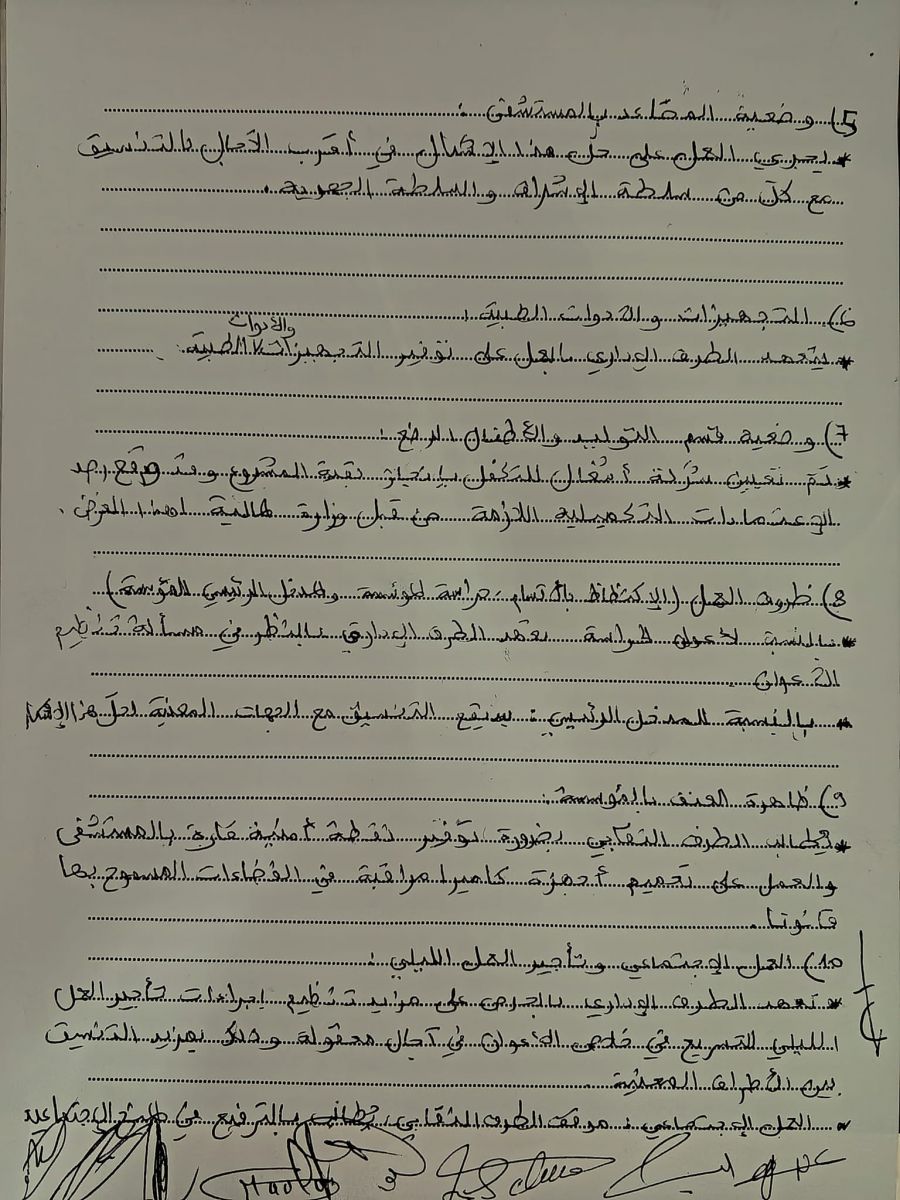 5) وضعية المصاعد بالمستشفى :
* يجري العمل على حل هذا الإشكال في أقرب الآجال بالتنسيق
مع كل من سلطة الإشراف والسلطة الجهوية.
6) التجهيزات والأدوات الطبية :
والأدوات
* يتعهد الطرف الإداري بالعمل على توفير التجهيزات الطبية
7) وضعية قسم التوليد والأطفال الرضع :
* تم تعيين شركة أشغال للتكفل بإنجاز بقية المشروع وقد وقع رصد
الإعتمادات التكميلية اللازمة من قبل وزارة المالية لهذا الغرض.
8) ظروف العمل (الإكتظاظ بالأقسام، حراسة المؤسسة والمدخل الرئيسي للمؤسسة)
* بالنسبة لأعوان الحراسة تعهد الطرف الإداري بالنظر في مسألة تنظيم
الأعوان
* بالنسبة المدخل الرئيسي : سيقع التنسيق مع الجهات المعنية لحل هذا الإشكال
9) ظاهرة العنف بالمؤسسة :
* يطالب الطرف النقابي بضرورة توفير نقطة أمنية قارة بالمستشفى
والعمل على تعميم أجهزة كاميرا مراقبة في الفضاءات المسموح بها
قانونا.
10) العمل الإجتماعي وتأجير العمل الليلي :
* تعهد الطرف الإداري بالحرص على مزيد تنظيم إجراءات تأجير العمل
الليلي للتسريع في خلاص الأعوان في آجال معقولة وذلك بمزيد التنسيق
بين الأطراف المعنية
* العمل الإجتماعي : موقف الطرف النقابي يطالب بالترفيع في